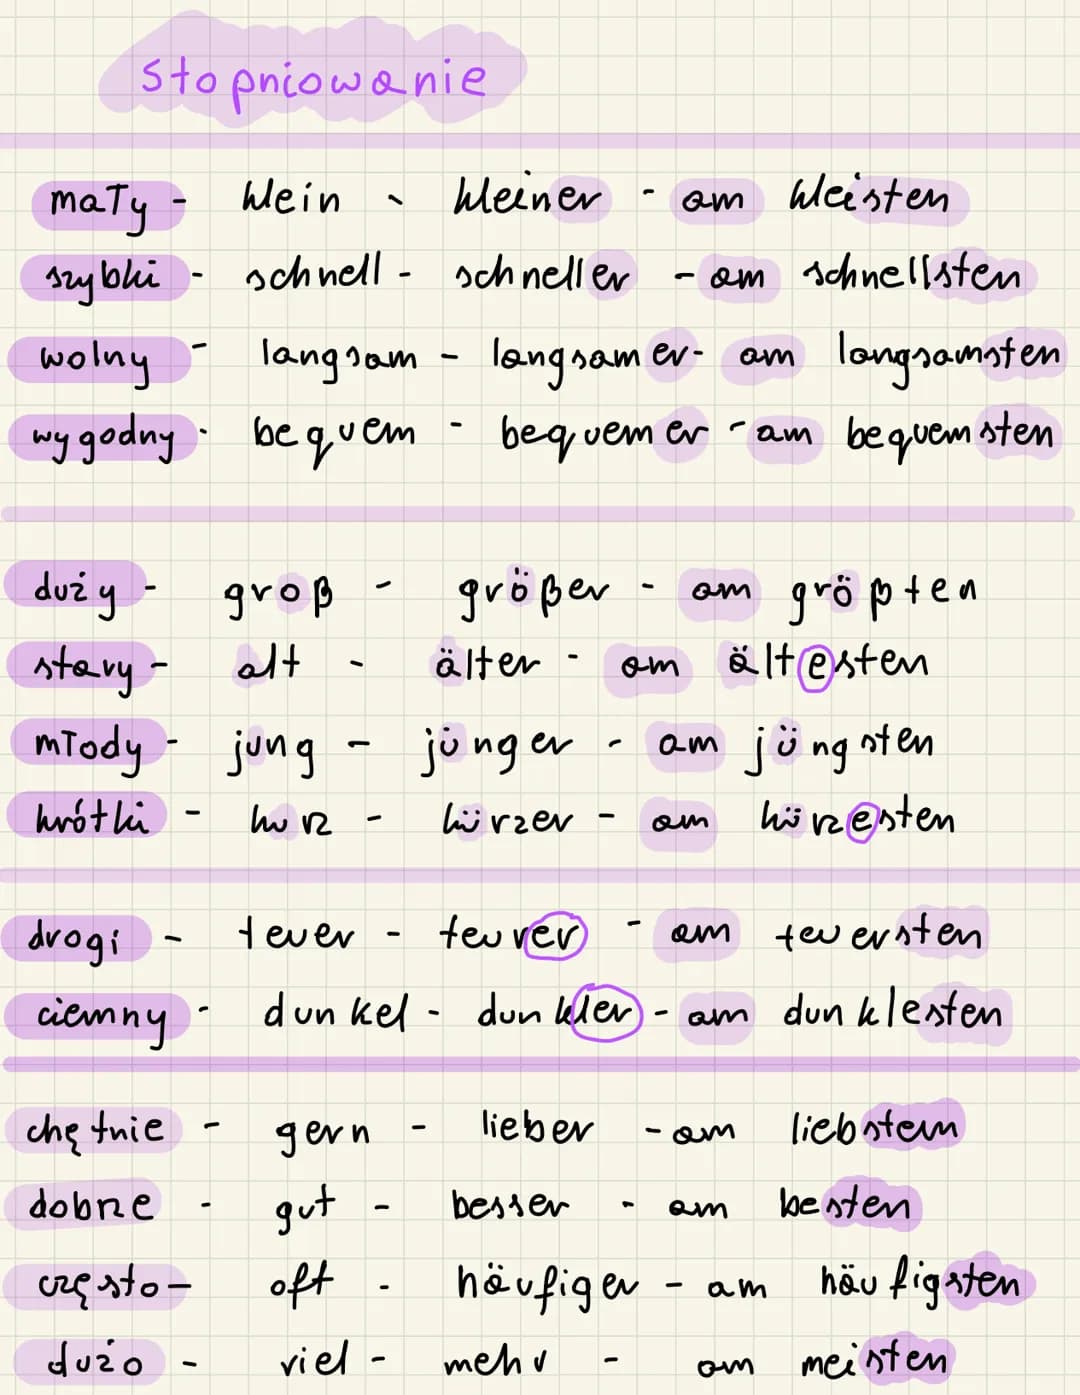 stopniowanie
mały - klein - kleiner - am kleisten
szybki - schnell - schneller - am schnellsten
wolny - langsam - langsamer - am langsamsten
wygodny - bequem - bequemer - am bequemsten
duży - groß - größer - am größten
stary - alt - älter - am ältesten
młody - jung - jünger - am jüngsten
krótki - kurz - kürzer - am kürzesten
drogi - teuer - teurer - am teuersten
ciemny - dunkel - dunkler - am dunklesten
chętnie - gern - lieber - am liebsten
dobrze - gut - besser - am besten
często - oft - häufiger - am häufigsten
dużo - viel - mehr - am meisten